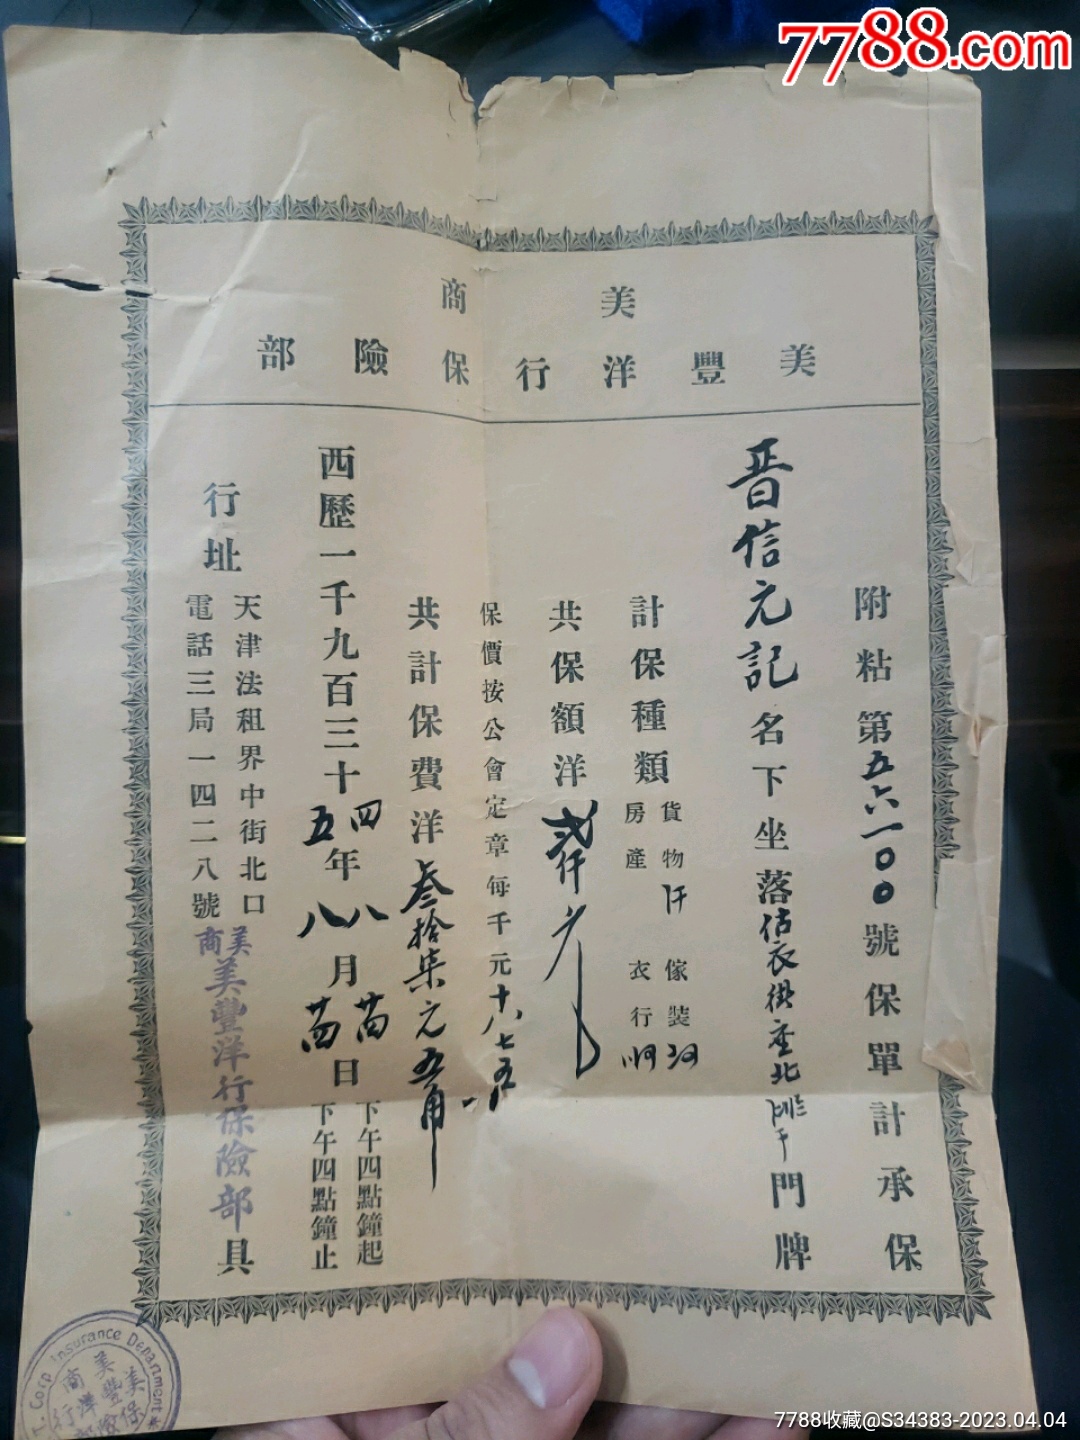 7788.com
美商
美豐洋行保險部
附粘第五六一00號保單計承保
晋信元記名下坐落估衣街坐北門牌
計保種類 貨物 傢裝
房產 衣行
共保額洋貳仟元
保價按公會定章每千元十八七五
共計保費洋叁拾柒元五角
西歷一千九百三十四年八月廿四日下午四點鐘起
五年八月廿四日下午四點鐘止
行址 天津法租界中街北口
電話三局一四二八號
美商美豐洋行保險部具
Corp Insurance Department
美商美豐洋行保險部
7788收藏@S34383-2023.04.04